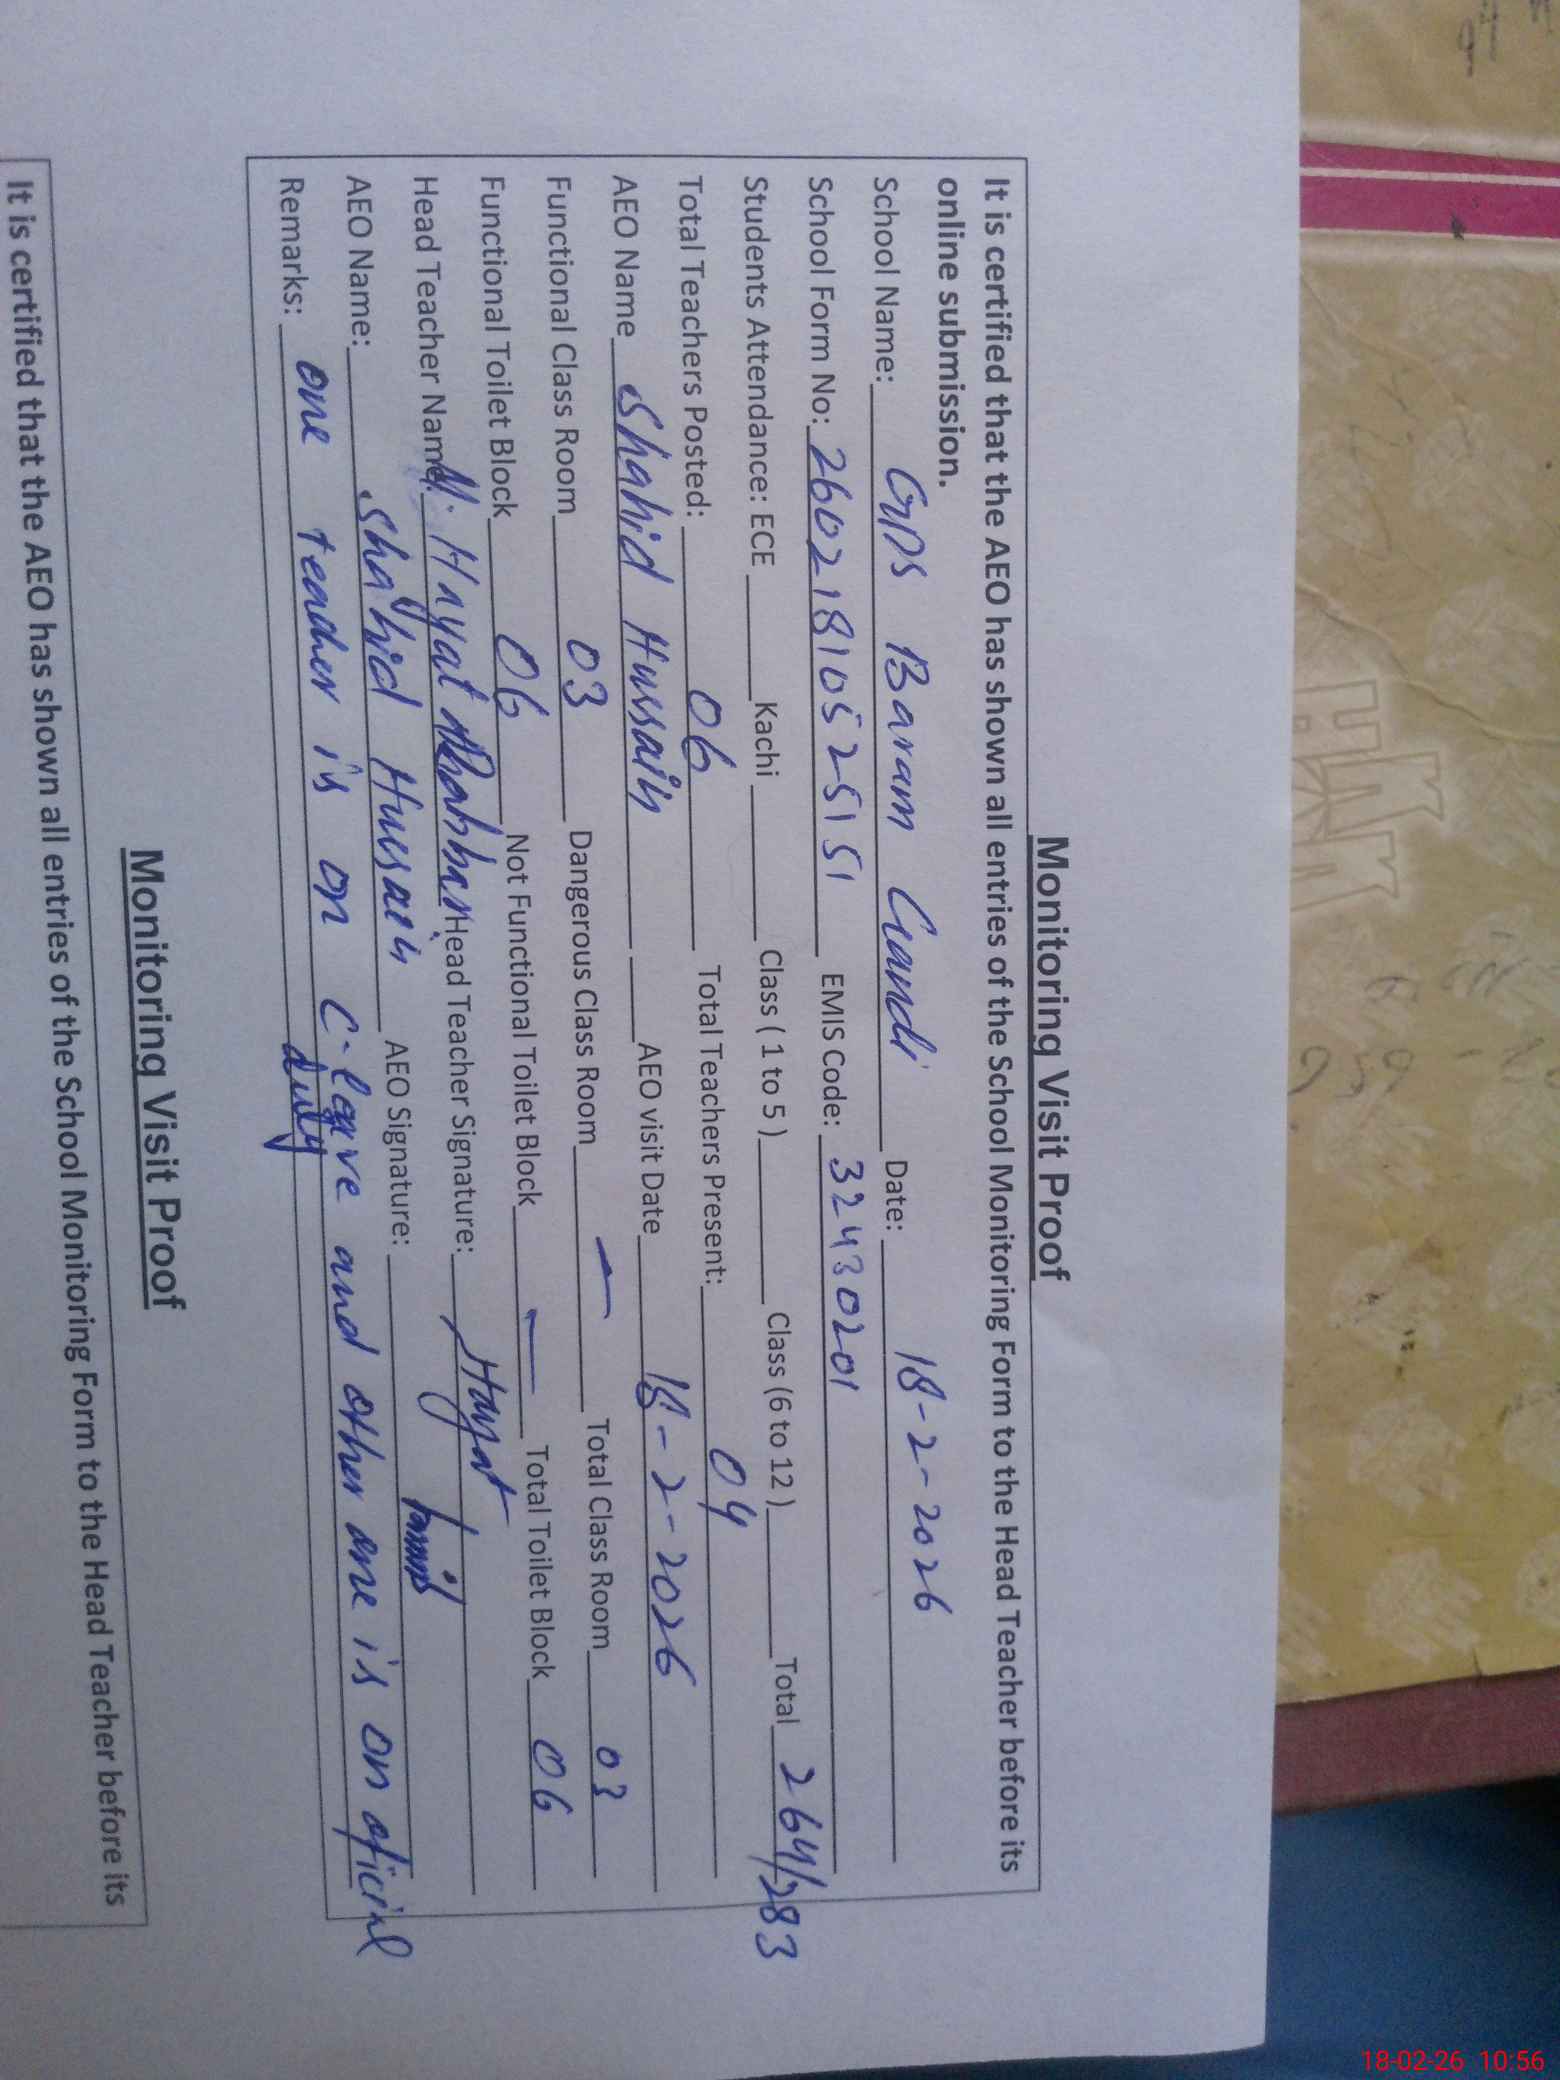 Monitoring Visit Proof
It is certified that the AEO has shown all entries of the School Monitoring Form to the Head Teacher before its
online submission.
School Name: GPS Baram Gandi Date: 18-2-2026
School Form No: 26021810525151 EMIS Code: 32430201
Students Attendance: ECE Kachi Class ( 1 to 5 ) Class (6 to 12 ) Total 264/283
Total Teachers Posted: 06 Total Teachers Present: 04
AEO Name Shahid Hussain AEO visit Date 18-2-2026
Functional Class Room 03 Dangerous Class Room — Total Class Room 03
Functional Toilet Block 06 Not Functional Toilet Block — Total Toilet Block 06
Head Teacher Name: M. Hayat Head Teacher Signature: Hayat
AEO Name: Shahid Hussain AEO Signature:
Remarks: one teacher is on C-leave and other one is on oficial
duty
Monitoring Visit Proof
It is certified that the AEO has shown all entries of the School Monitoring Form to the Head Teacher before its
18-02-26 10:56